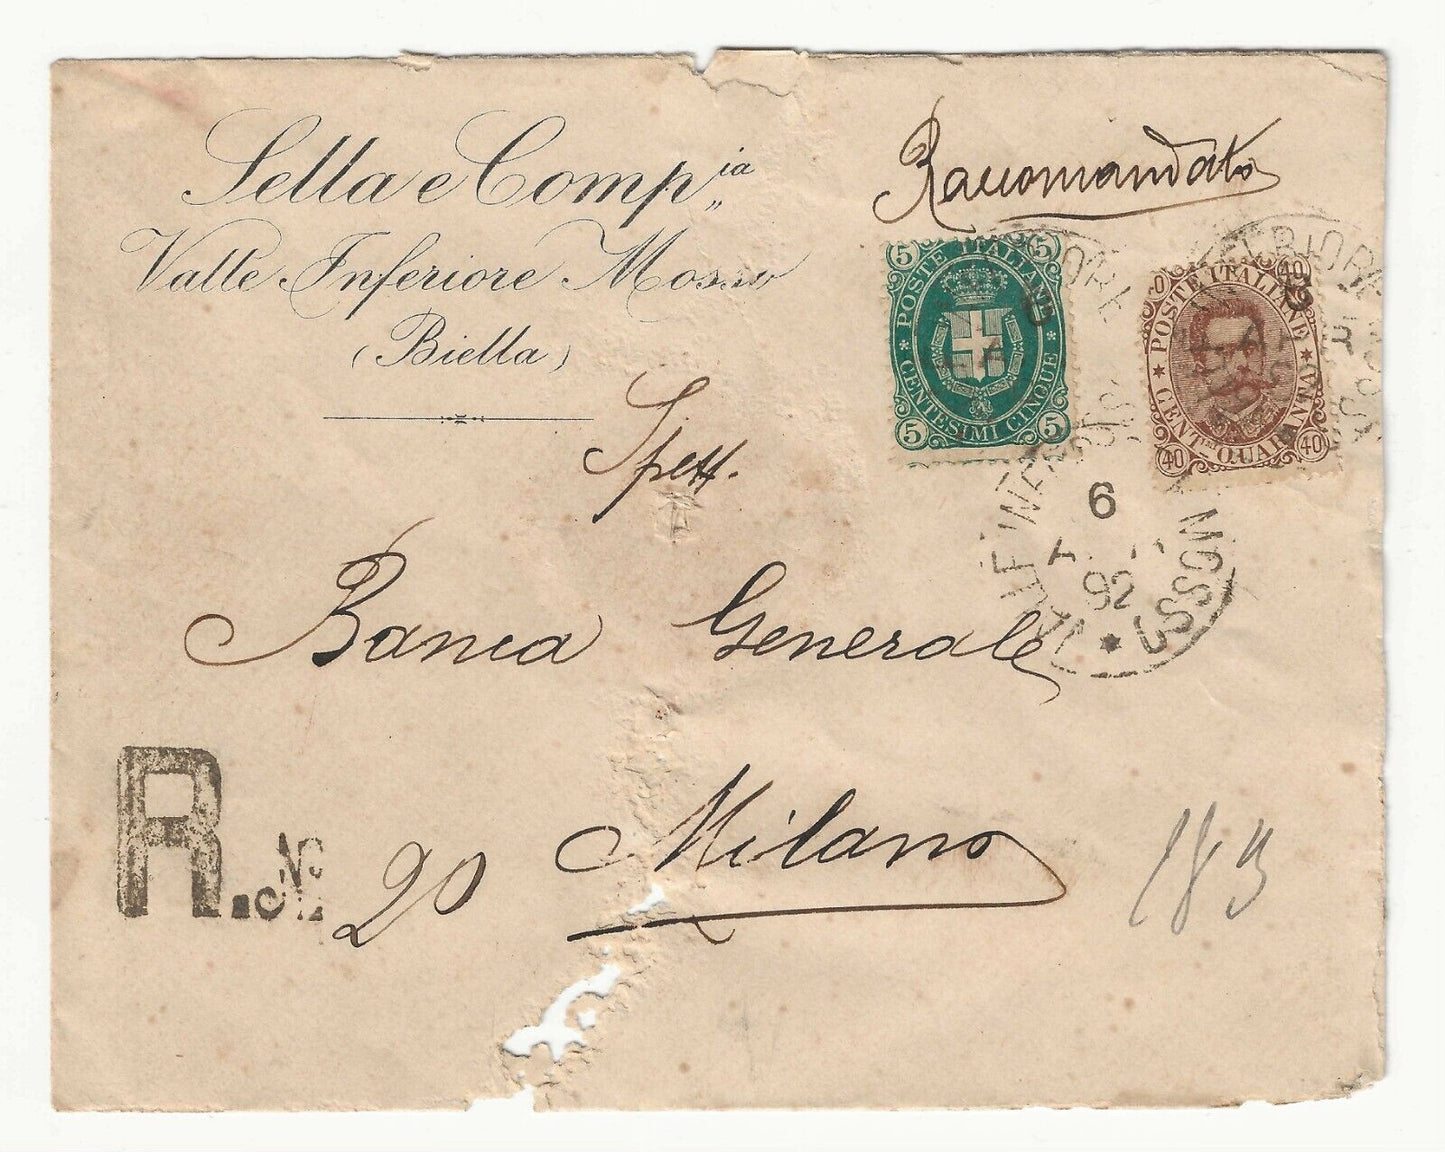 Sella e Comp.ia
Valle Inferiore Mosso
(Biella)
Raccomandata
5 5
POSTE ITALIANE
CENTESIMI CINQUE
5 5
40 40
POSTE ITALIANE
CENT.MI QUARANTA
40 40
6
92
VALLE INFERIORE MOSSO
6
92
Spett.
Banca Generale
Milano
R. No 20
183